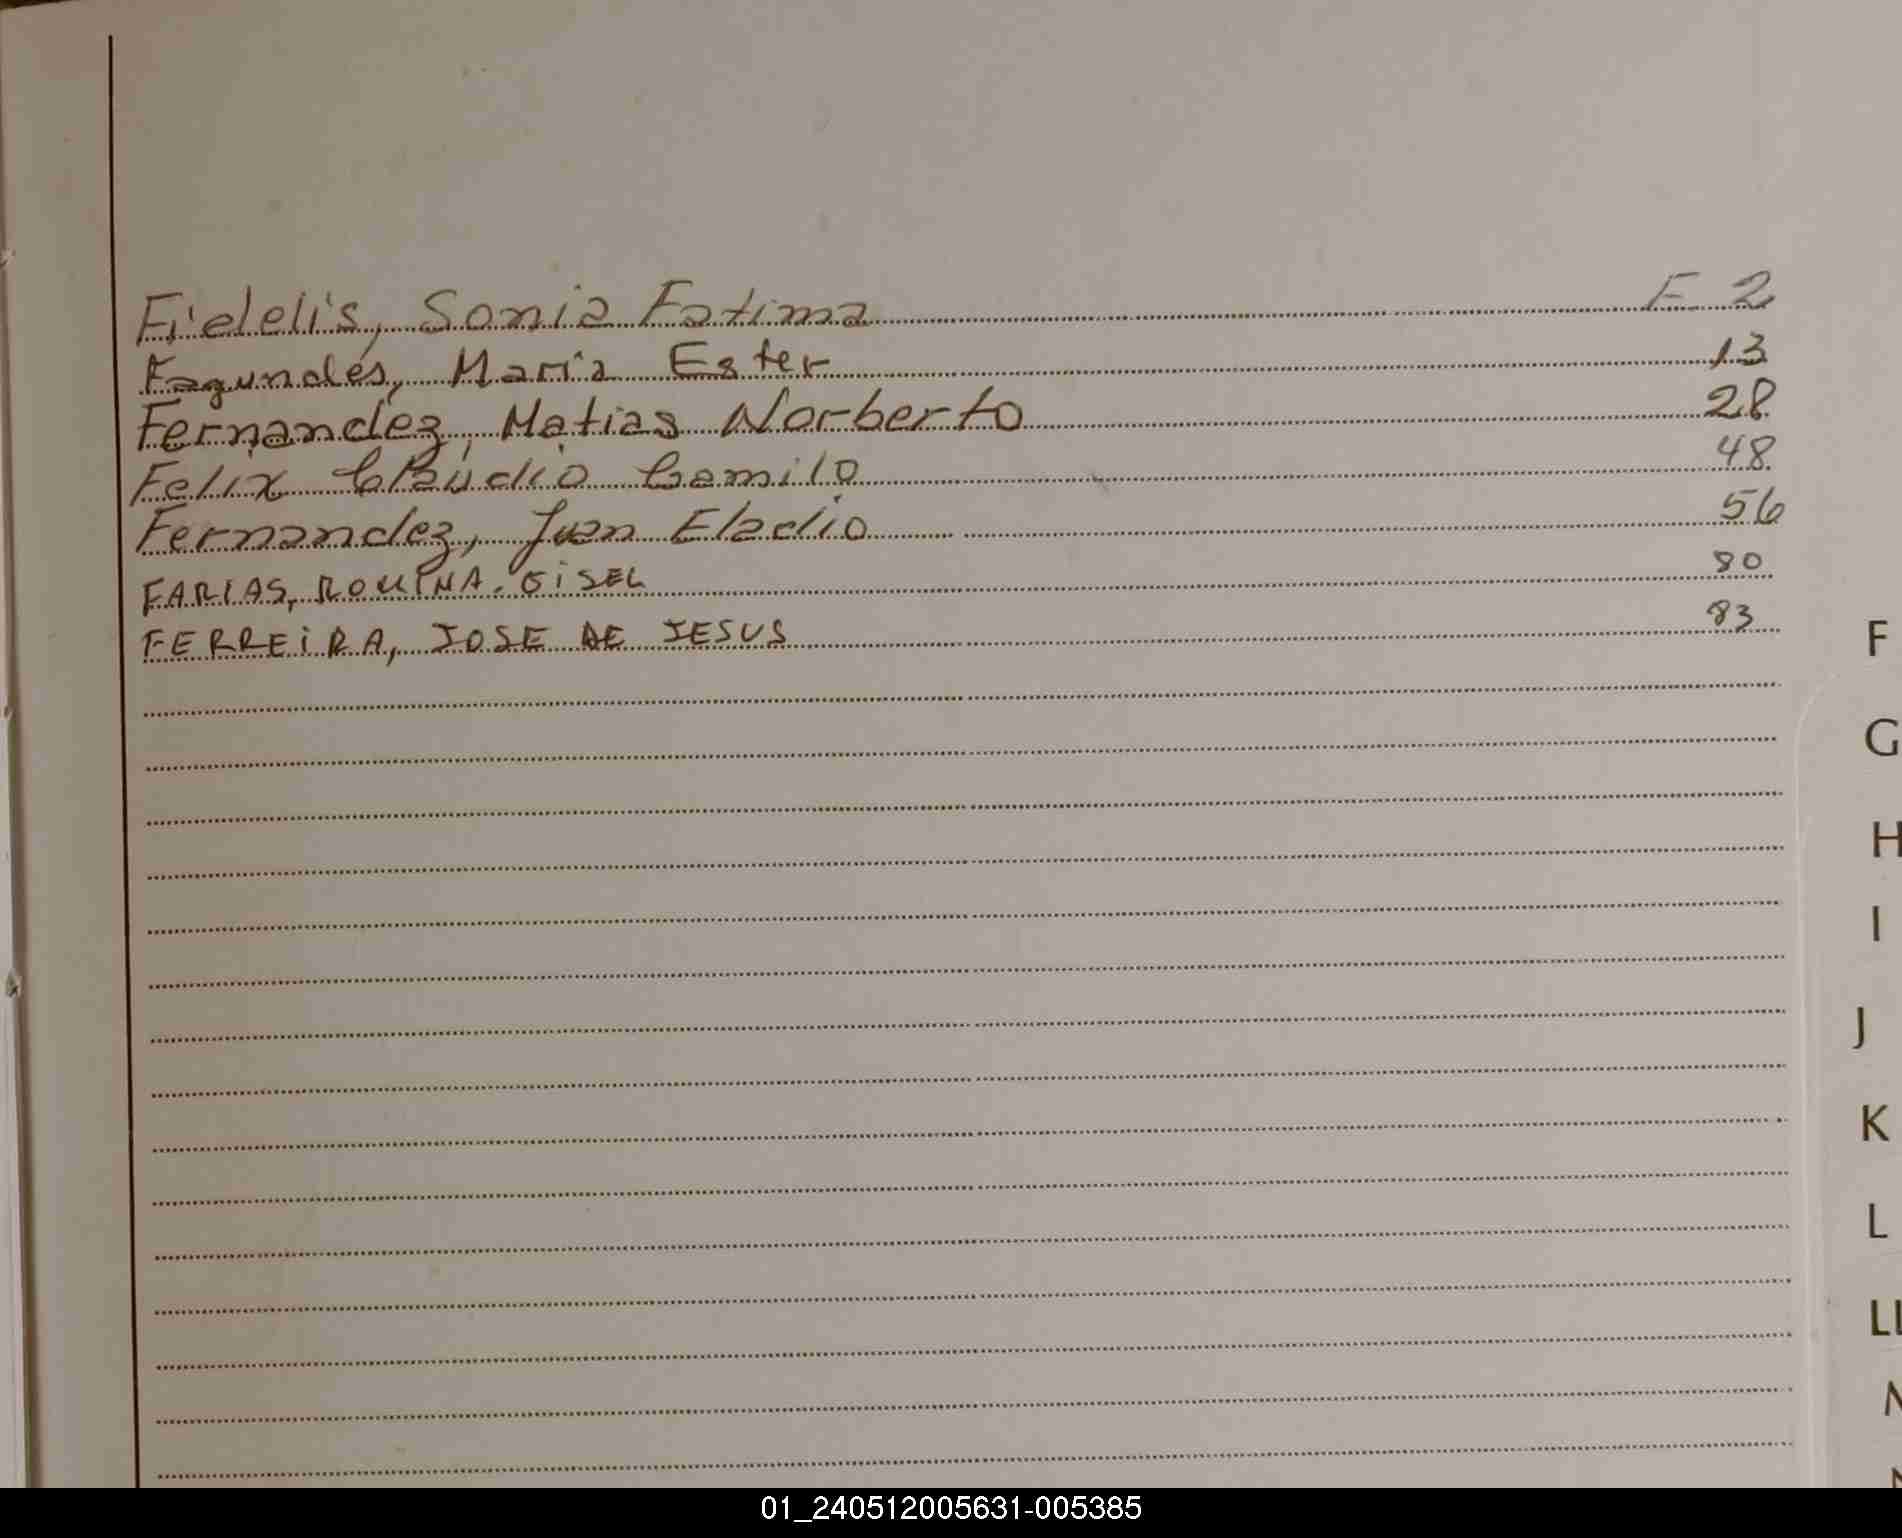 Fidelis, Sonia Fatima F 2
Fagundes, Maria Ester 13
Fernandez, Matias Norberto 28
Felix Claudio Camilo 48
Fernandez, Juan Eladio 56
FARIAS, ROMINA. GISEL 80
FERREIRA, JOSE DE JESUS 83
F
G
H
I
J
K
L
LL
01_240512005631-005385